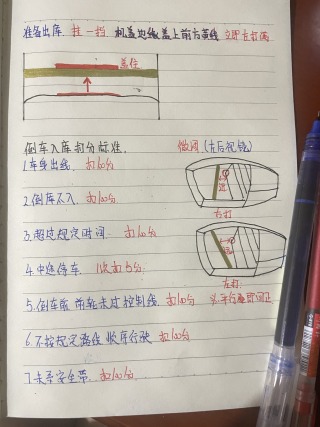 准备出库 挂一挡 机盖边缘盖上前方黄线 立即左打满
盖住
倒车入库扣分标准.
微调 (左后视镜)
1.车身出线. 扣100分
2.倒库不入. 扣100分
右打
3.超过规定时间. 扣100分
4.中途停车. 1次扣5分
左打.
5.倒车前 前轮未过控制线. 扣100分
6.不按规定路线 顺序行驶 扣100分
7.未系安全带. 扣100分.